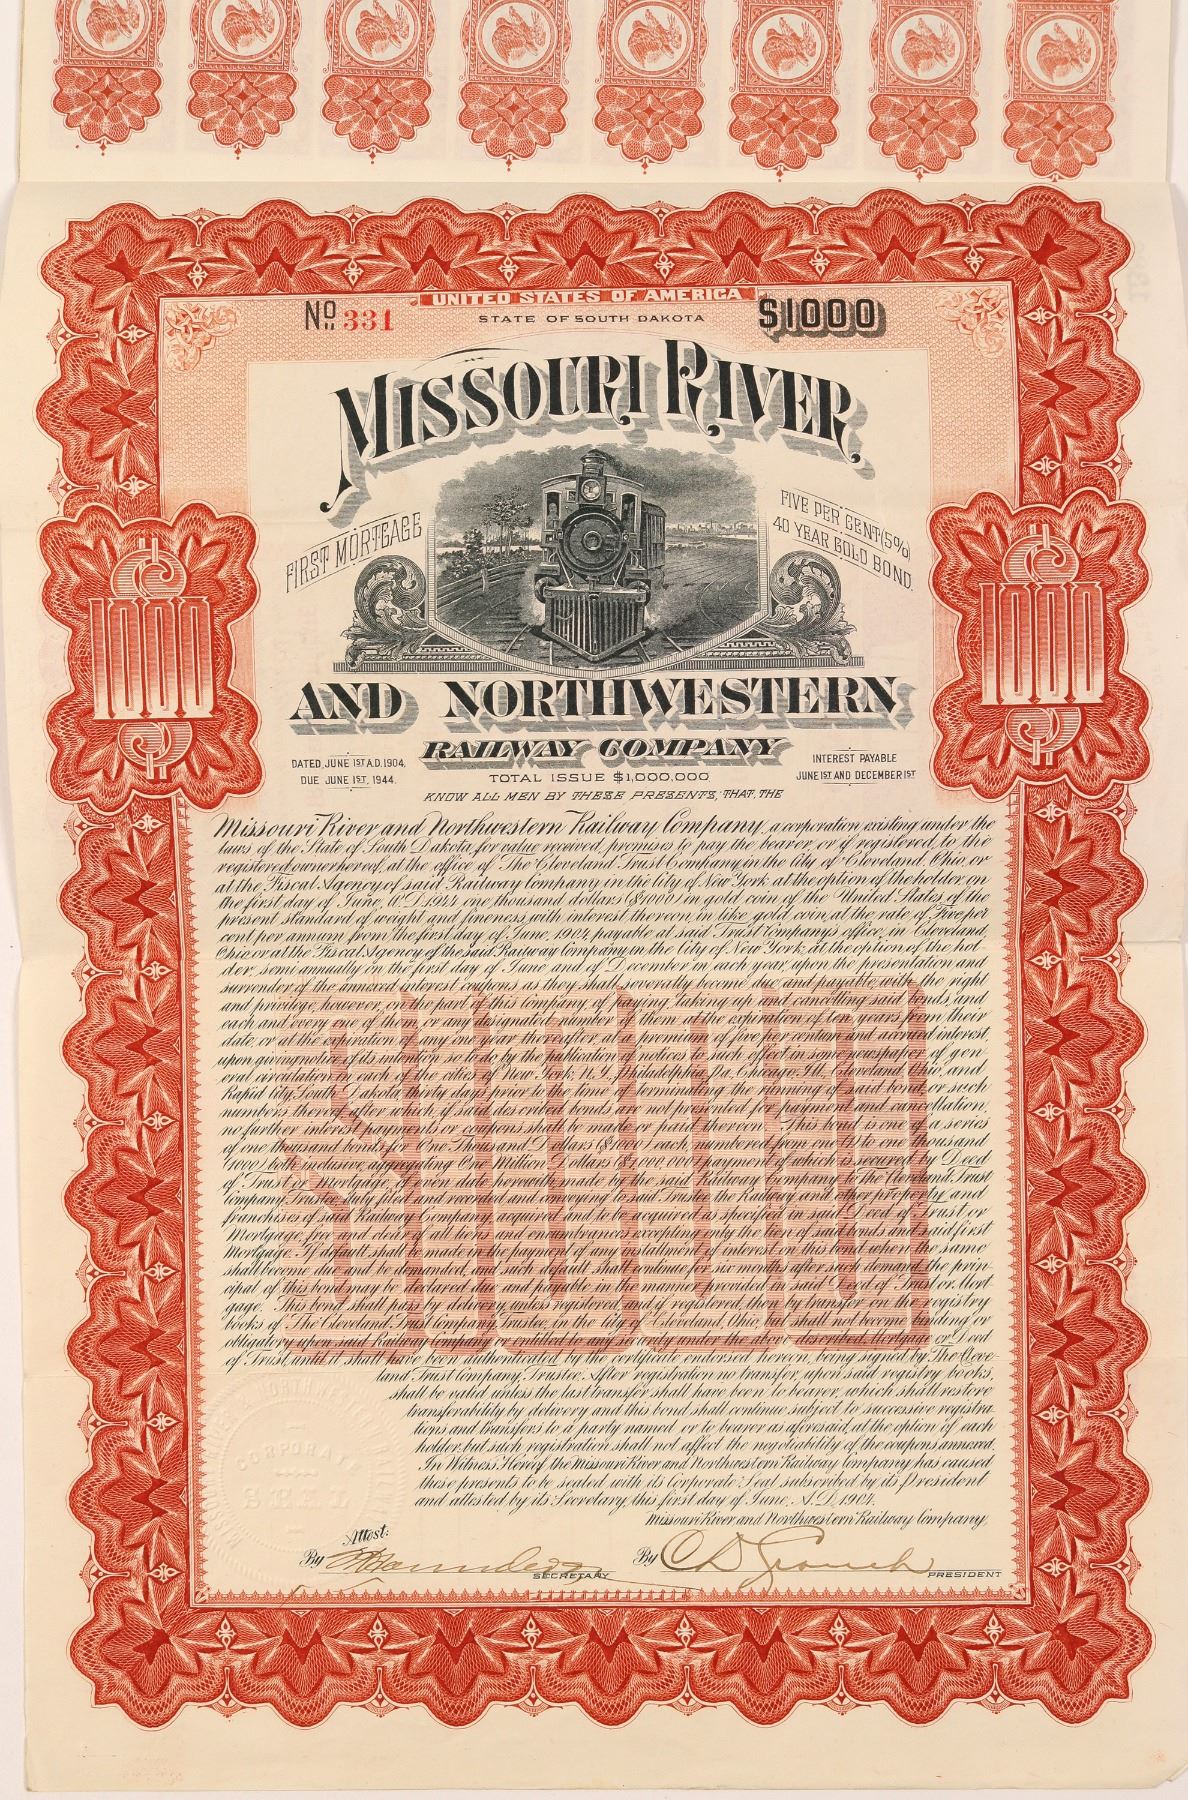 UNITED STATES OF AMERICA
No. 331
STATE OF SOUTH DAKOTA
$1000
MISSOURI RIVER
FIRST MORTGAGE
FIVE PER CENT (5%)
40 YEAR GOLD BOND.
1000
1000
AND NORTHWESTERN
RAILWAY COMPANY
DATED, JUNE 1ST A.D. 1904.
DUE JUNE 1ST, 1944.
INTEREST PAYABLE
JUNE 1ST AND DECEMBER 1ST
TOTAL ISSUE $1,000,000
KNOW ALL MEN BY THESE PRESENTS, THAT, THE
Missouri River and Northwestern Railway Company, a corporation existing under the
laws of the State of South Dakota, for value received, promises to pay the bearer, or if registered, to the
registered owner hereof, at the office of The Cleveland Trust Company, in the City of Cleveland, Ohio, or
at the Fiscal Agency of said Railway Company in the City of New York, at the option of the holder, on
the first day of June, A.D. 1944 one thousand dollars ($1000) in gold coin of the United States, of the
present standard of weight and fineness, with interest thereon, in like gold coin, at the rate of Five per
cent per annum from the first day of June, 1904, payable at said Trust Company's office, in Cleveland,
Ohio, or at the Fiscal Agency of the said Railway Company in the City of New York, at the option of the hol-
der, semi annually on the first day of June and of December in each year upon the presentation and
surrender of the annexed interest coupons as they shall severally become due and payable, with the right
and privilege, however, on the part of this company of paying, taking up and cancelling said bonds, and
each and every one of them, or any designated number of them at the expiration of ten years from their
date, or at the expiration of any one year thereafter, at a premium of five per centum and accrued interest,
upon giving notice of its intention so to do by the publication of notices to such effect in some newspaper of gen-
eral circulation, in each of the cities of New York, N.Y., Philadelphia, Pa., Chicago, Ill., Cleveland, Ohio, and
Rapid City, South Dakota, thirty days prior to the time of terminating the running of said bond, or such
numbers thereof, after which, if said described bonds are not presented for payment and cancellation,
no further interest payments or coupons shall be made or paid thereon. This bond is one of a series
of one thousand bonds for One Thousand Dollars ($1000) each, numbered from one (1) to one thousand
(1000), both inclusive, aggregating One Million Dollars ($1,000,000) payment of which is secured by Deed
of Trust or Mortgage, of even date herewith, made by the said Railway Company to the Cleveland Trust
Company, Trustee, duly filed and recorded and conveying to said Trustee the Railway and other property and
franchises of said Railway Company, acquired and to be acquired as specified in said Deed of Trust or
Mortgage, free and clear of all liens and encumbrances excepting only the lien of said bonds and said first
Mortgage. If default shall be made in the payment of any installment of interest on this bond when the same
shall become due and be demanded, and such default shall continue for six months after such demand, the prin-
cipal of this bond may be declared due and payable in the manner provided in said Deed of Trust or Mort-
gage. This bond shall pass by delivery, unless registered, and if registered, then by transfer on the registry
books of The Cleveland Trust Company, Trustee, in the city of Cleveland, Ohio, but shall not become binding or
obligatory upon said Railway Company or entitled to any security under the above described Mortgage or Deed
of Trust, until it shall have been authenticated by the certificate endorsed hereon, being signed by The Cleve-
land Trust Company, Trustee. After registration no transfer, upon said registry books,
shall be valid unless the last transfer shall have been to bearer, which shall restore
transferability by delivery and this bond shall continue subject to successive registra
tions and transfers to a party named or to bearer as aforesaid, at the option of each
holder, but such registration shall not affect the negotiability of the coupons annexed.
In Witness Hereof the Missouri River and Northwestern Railway Company has caused
these presents to be sealed with its Corporate Seal subscribed by its President
and attested by its Secretary, this first day of June, A.D. 1904.
Missouri River and Northwestern Railway Company,
$1000
CORPORATE
SEAL
Attest:
By
SECRETARY
By C D Crouch
PRESIDENT